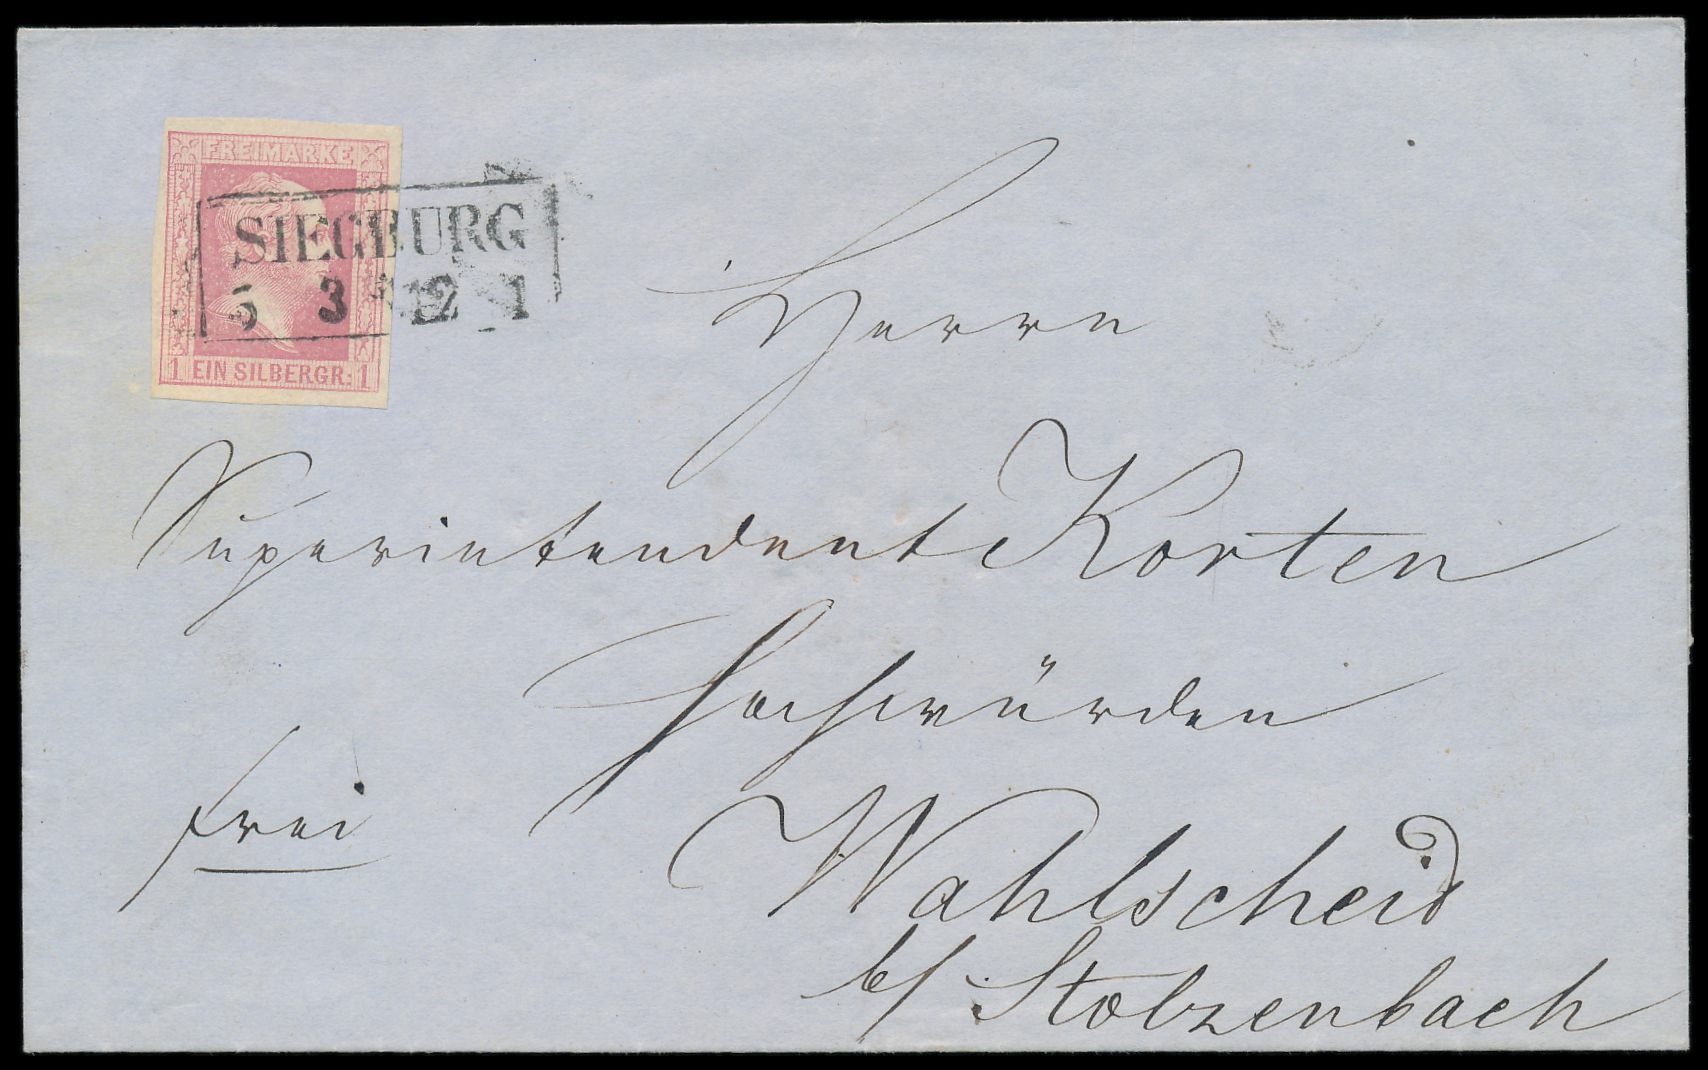 FREIMARKE
SIEGBURG
5 3 12 1
1 EIN SILBERGR: 1
Herrn
Superintendent Korten
Hochwürden
frei
Wahlscheid
b/ Stolzenbach